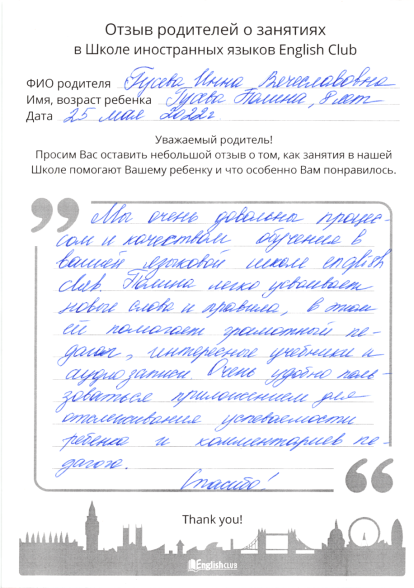 Отзыв родителей о занятиях
в Школе иностранных языков English Club
ФИО родителя Гусева Инна Вячеславовна
Имя, возраст ребенка Гусева Полина, 8 лет
Дата 25 мая 2022г.
Уважаемый родитель!
Просим Вас оставить небольшой отзыв о том, как занятия в нашей
Школе помогают Вашему ребенку и что особенно Вам понравилось.
Мы очень довольны процес-
сом и качеством обучения в
вашей языковой школе english
club. Полина легко усваивает
новые слова и правила, в этом
ей помогает грамотный пе-
дагог, интересные учебники и
аудиозаписи. Очень удобно поль-
зоваться приложением для
отслеживания успеваемости
ребенка и комментариев пе-
дагога.
Спасибо!
Thank you!
English CLUB